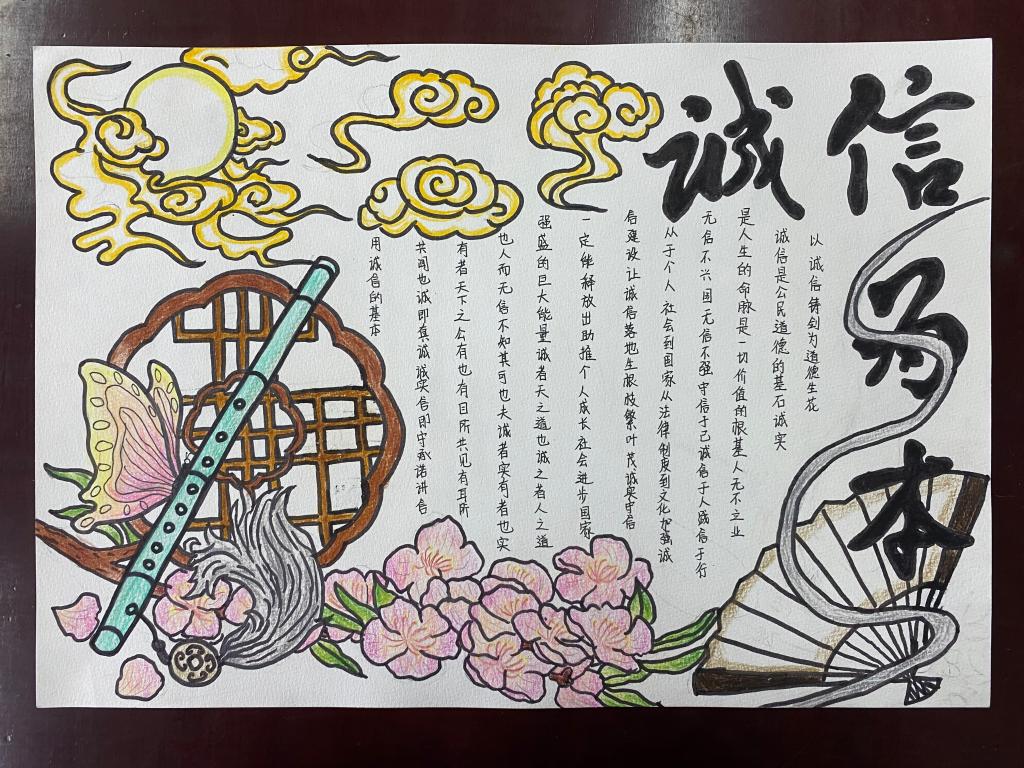 诚信
为本
以诚信铸剑为道德生花
诚信是公民道德的基石诚实
是人生的命脉是一切价值的根基人无不立业
无信不兴国无信不强守信于己诚信于人感信于行
从于个人社会到国家从法律制度到文化加强诚
信建设让诚信落地生根枝繁叶茂诚实守信
一定能释放出助推个人成长社会进步国家
强盛的巨大能量诚者天之道也诚之者人之道
也人而无信不知其可也夫诚者实有者也实
有者天下之公有也有目所共见有耳所
共闻也诚即真诚诚实信即守承诺讲信
用诚信的基本